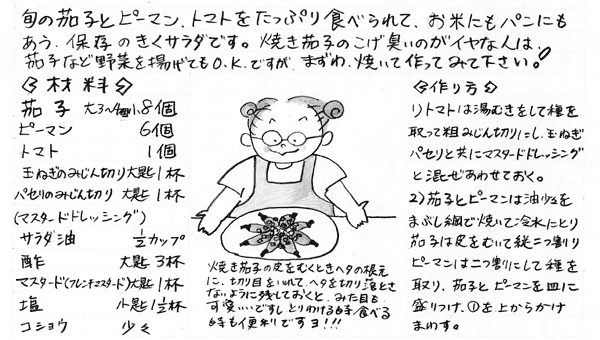 旬の茄子とピーマン、トマトをたっぷり食べられて、お米にもパンにも
あう、保存のきくサラダです。焼き茄子のこげ臭いのがイヤな人は、
茄子など野菜を揚げてもO.K.ですが、まずわ、焼いて作ってみて下さい。!
<材料>
茄子 大3~4個小8個
ピーマン 6個
トマト 1個
玉ねぎのみじん切り 大匙1杯
パセリのみじん切り 大匙1杯
(マスタードドレッシング)
サラダ油 ½カップ
酢 大匙3杯
マスタード(フレンチマスタード)大匙1杯
塩 小匙1½杯
コショウ 少々
焼き茄子の皮をむくときヘタの根元
に、切り目をいれて、ヘタを切り落とさ
ないように残しておくと、みため
可愛いいですし とりわける時/食べる
時も便利ですヨ!!!
<作り方>
1)トマトは湯むきをして種を
取って粗みじん切りにし、玉ねぎ
パセリと共にマスタードドレッシング
と混ぜあわせておく。
2)茄子とピーマンは油少々を
まぶし網で焼いて冷水にとり
茄子は皮をむいて縦二つ割り
ピーマンは二つ割にして種を
取り、茄子とピーマンを皿に
盛りつけ、①を上からかけ
まわす。